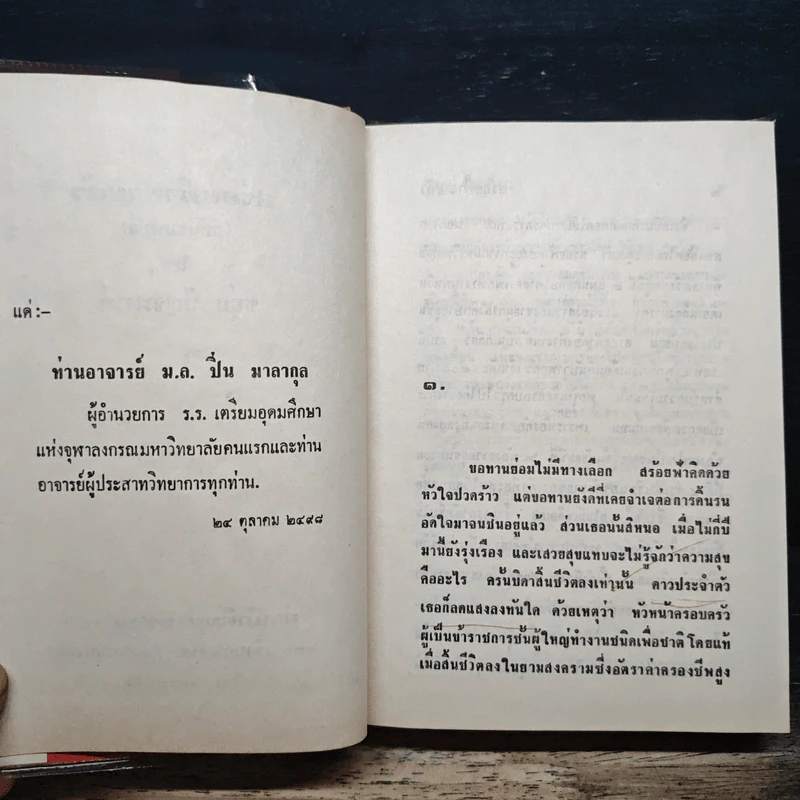 แด่ :–
ท่านอาจารย์ ม.ล. ปิ่น มาลากุล
ผู้อำนวยการ ร.ร. เตรียมอุดมศึกษา
แห่งจุฬาลงกรณมหาวิทยาลัยคนแรกและท่าน
อาจารย์ผู้ประสาทวิทยาการทุกท่าน.
๒๔ ตุลาคม ๒๔๙๘
๑.
ขอทานย่อมไม่มีทางเลือก สร้อยฟ้าคิดด้วย
หัวใจปวดร้าว แต่ขอทานยังดีที่เคยจำเจต่อการดิ้นรน
อัตใจมาจนชินอยู่แล้ว ส่วนเธอนั้นสิหนอ เมื่อไม่กี่ปี
มานี้ยังรุ่งเรือง และเสวยสุขแทบจะไม่รู้จักว่าความสุข
คืออะไร ครั้นบิดาสิ้นชีวิตลงเท่านั้น ดาวประจำตัว
เธอก็ลดแสงลงทันใด ด้วยเหตุว่า หัวหน้าครอบครัว
ผู้เป็นข้าราชการชั้นผู้ใหญ่ทำงานชนิดเพื่อชาติโดยแท้
เมื่อสิ้นชีวิตลงในยามสงครามซึ่งอัตราค่าครองชีพสูง